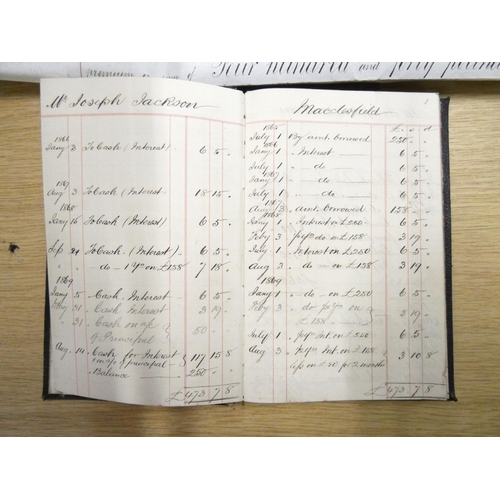 premium sum of Four hundred and forty pounds
Mr Joseph Jackson
1866
Jany 3 To Cash (Interest) 6 5 "
1867
Aug 3 To Cash (Interest) 18 15 "
1868
Jany 16 To Cash (Interest) 6 5 "
Sep 24 To Cash (Interest) 6 5 "
" do - 1 yr on £158 7 18 "
1869
Jany 5 Cash Interest 6 5 "
Feby 21 Cash Interest 3 19
21 Cash on a/c of Principal 50 "
Aug 14 Cash for Interest & on a/c of principal 117 15 8
Balance 250 "
£473 7 8
Macclesfield 1
£ s d
1865
July 1 By amt. borrowed 250 "
1866
Jany 1 Interest 6 5 "
July 1 " do 6 5 "
1867
Jany 1 " do 6 5 "
July 1 " do 6 5 "
Aug 3 " amt. borrowed 158 "
1868
Jany 1 Interest on £250 6 5 "
Feby 3 ½ yrs do on £158 3 19 "
July 1 Interest on £250 6 5 "
Aug 3 do on £158 3 19 "
1869
Jany 1 " do on £250 6 5 "
Feby 3 " do ½ yrs on £158 3 19 "
July 1 ½ yrs Int. on £250 6 5 "
Aug 3 ½ yrs Int. on £158 3 10 8
less on £50 for 2 months
£473 7 8